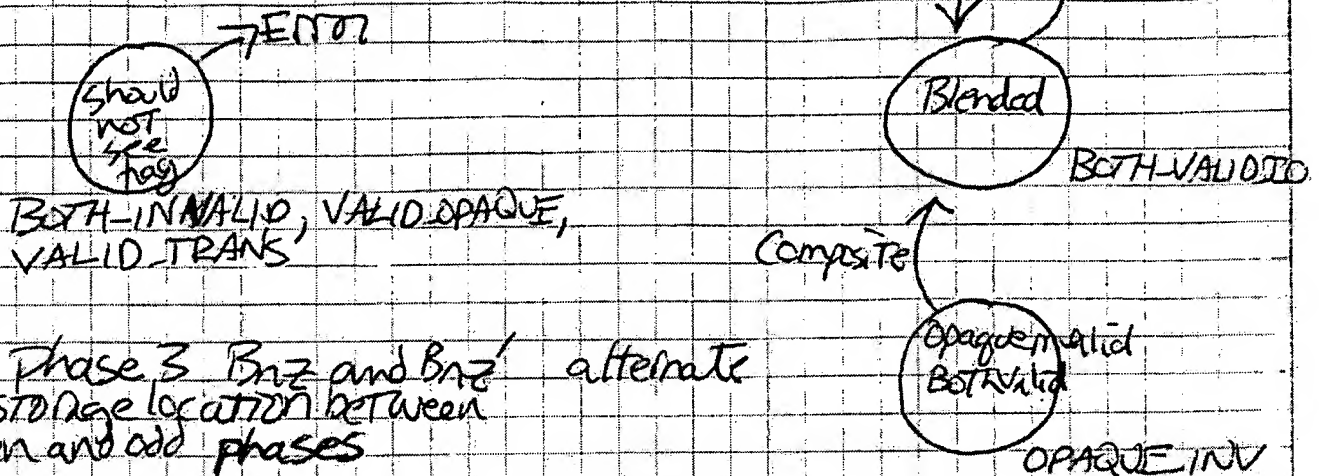 Error
should
not
see
BOTH_INVALID, VALID_OPAQUE,
VALID_TRANS
Phase 3 Bnz and Bnz' alternate
storage location between
n and odd phases
Blended
BOTH_VALID
Composite
Opaque
BothValid
OPAQUE_INV